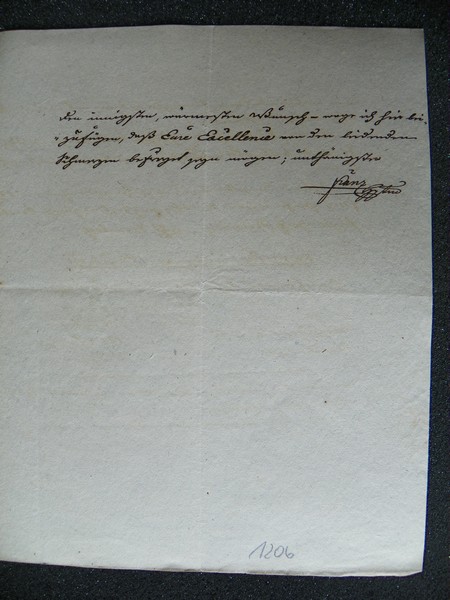 den innigsten, wärmesten Wunsch – wage ich hier bei-
zufügen, daß Eure Excellence von den leidenden
Schmerzen befreyet seyn mögen; unthänigster
Franz
1206